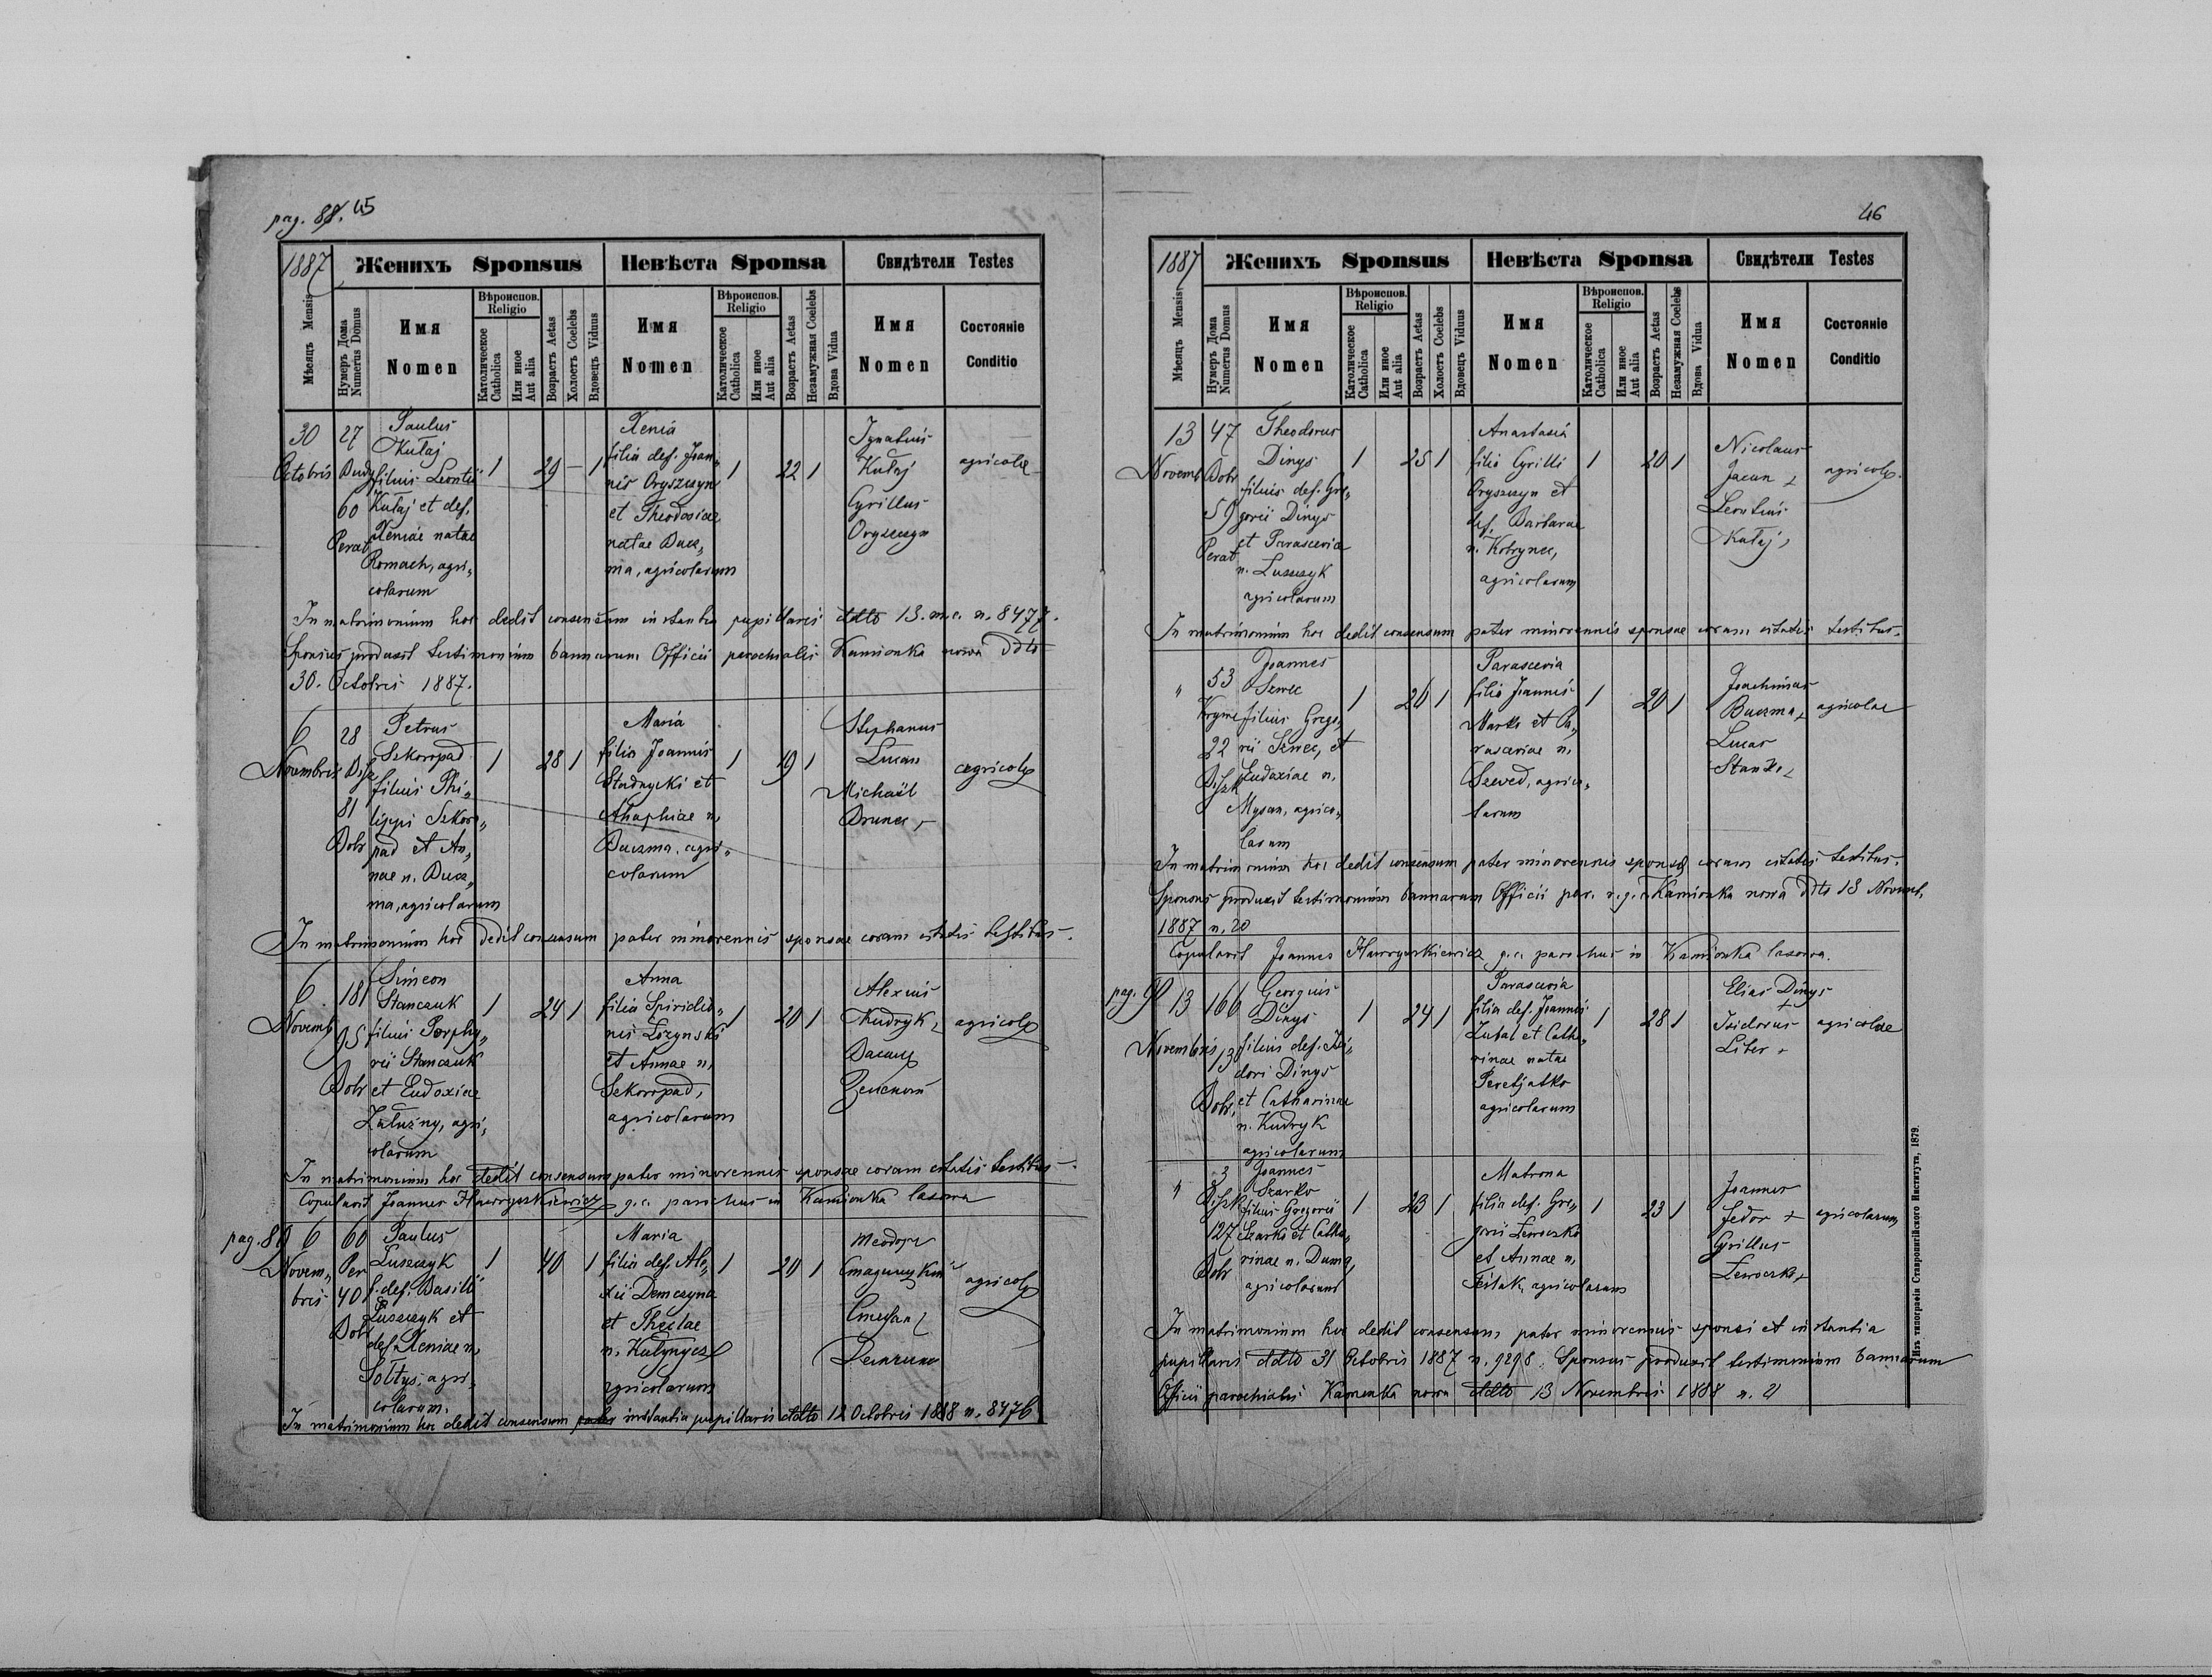 pag. 88. 45
1887 Женихъ Sponsus Невѣста Sponsa Свидѣтели Testes
Мѣсяцъ Mensis
Нумеръ Дома Numerus Domus
Имя Nomen
Вѣроиспов. Religio
Католическое Catholica
Или иное Aut alia
Возрастъ Aetas
Холостъ Coelebs
Вдовецъ Viduus
Имя Nomen
Вѣроиспов. Religio
Католическое Catholica
Или иное Aut alia
Возрастъ Aetas
Незамужная Coelebs
Вдова Vidua
Имя Nomen
Состояніе Conditio
30
Octobris
27
60
Perat
Paulus
Kułaj
filius Leontii
Kułaj et def.
Xeniae natae
Romach, agri„
colarum
1 29 – 1
Xenia
filia def. Joan„
nis Oryszczyn
et Theodosiae
natae Bucz„
ma, agricolarum
1 22 1
Ignatius
Kułaj
Cyrillus
Oryszczyn
agricolae
In matrimonium hoc dedit consensum instantia pupillaris ddto 13. m.c. n. 8477.
Sponsus produxit testimonium bannorum Officii parochialis Kamionka nowa ddto
30. Octobris 1887.
6
Novembris
28
81
Dobr
Petrus
Szkoropad
filius Phi„
lippi Szkoro„
pad et An„
nae n. Bucz„
ma, agricolarum
1 28 1
Maria
filia Joannis
Studnycki et
Ahaphiae n.
Buczma, agri„
colarum
1 19 1
Stephanus
Lucan
Michaël
Brunec +
agricolae
In matrimonium hoc dedit consensum pater minorennis sponsae coram citatis testibus.
6.
Novemb
181
95
Dobr
Simeon
Stanczuk
filius Porphy„
rii Stanczuk
et Eudoxiae
Załużny, agri„
colarum
1 24 1
Anna
filia Spiridio„
nis Łozynski
et Annae n.
Szkoropad,
agricolarum
1 20 1
Alexius
Kudryk
agricolae
In matrimonium hoc dedit consensum pater minorennis sponsae coram citatis testibus.
Copulavit Joannes Hawryszkiewicz g.c. parochus in Kamionka lasowa
pag. 89
6
Novem„
bris
60
Per
40
Dobr
Paulus
Łuszczyk
f. def. Basilii
Łuszczyk et
def. Xeniae n.
Sołtys, agri„
colarum.
1 40 1
Maria
filia def. Ale„
xii Demczyna
et Theclae
n. Kułynycz
agricolarum
1 20 1
Стефан
agricolae
In matrimonium hoc dedit consensum pater instantia pupillaris ddto 12 Octobris 1888 n. 8476
46
1887 Женихъ Sponsus Невѣста Sponsa Свидѣтели Testes
Мѣсяцъ Mensis
Нумеръ Дома Numerus Domus
Имя Nomen
Вѣроиспов. Religio
Католическое Catholica
Или иное Aut alia
Возрастъ Aetas
Холостъ Coelebs
Вдовецъ Viduus
Имя Nomen
Вѣроиспов. Religio
Католическое Catholica
Или иное Aut alia
Возрастъ Aetas
Незамужная Coelebs
Вдова Vidua
Имя Nomen
Состояніе Conditio
13
Novemb
47
Dobr
59
Perat
Theodorus
Dinys
filius def. Gre„
gorii Dinys
et Parasceviae
n. Łuszczyk
agricolarum
1 25 1
Anastasia
filia Cyrilli
Oryszczyn et
def. Barbarae
n. Kobrynec,
agricolarum
1 20 1
Nicolaus
Jacun +
Leontius
Kułaj,
agricolae
In matrimonium hoc dedit consensum pater minorennis sponsae coram citatis testibus.
„
53
22
Joannes
Szwec
filius Grego„
rii Szwec, et
Eudoxiae n.
Mysan, agrico„
larum
1 26 1
Parascevia
filia Joannis
Marko et Pa„
rasceviae n.
Szewed, agrico„
larum
1 20 1
Joachimus
Buczma +
Lucas
Stanko +
agricolae
In matrimonium hoc dedit consensum pater minorennis sponsae coram citatis testibus.
Sponsus produxit testimonium bannorum Officii par. r.g.c. Kamionka nowa ddto 13 Novemb.
1887 n. 20
Copulavit Joannes Hawryszkiewicz g.c. parochus in Kamionka lasowa.
pag. 90
13
Novembris
166
13
Dobr,
Georgius
Dinys
filius def. Isi„
dori Dinys
et Catharinae
n. Kudryk
agricolarum
1 24 1
Parascevia
filia def. Joannis
Zubal et Catha„
rinae natae
Peretjatko
agricolarum
1 28 1
Elias Dinys
+
Isidorus
Liber +
agricolae
„
3
127
Dobr
Joannes
Szarko
filius Gregorii
Szarko et Catha„
rinae n. Duma,
agricolarum
1 23 1
Matrona
filia def. Gre„
gorii Lewoczko
et Annae n.
Feštak, agricolarum
1 23 1
Joannes
Fedor +
Cyrillus
Lewoczko +
agricolarum
In matrimonium hoc dedit consensum pater minorennis sponsi et instantia
pupillaris ddto 31 Octobris 1887 n. 9298. Sponsus produxit testimonium bannorum
Officii parochialis Kamionka nowa ddto 13 Novembris 1888 n. 21
Изъ типографіи Ставропигійского Института, 1879.